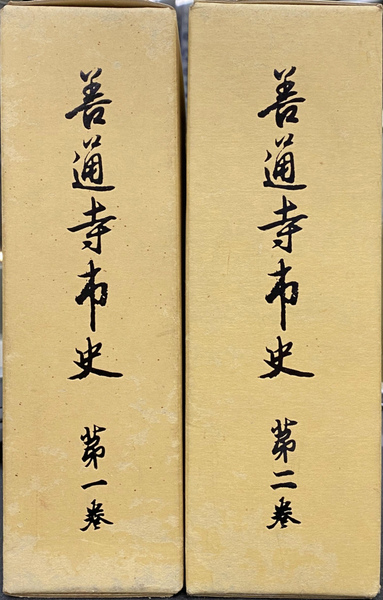 善通寺市史 第一巻
善通寺市史 第二巻